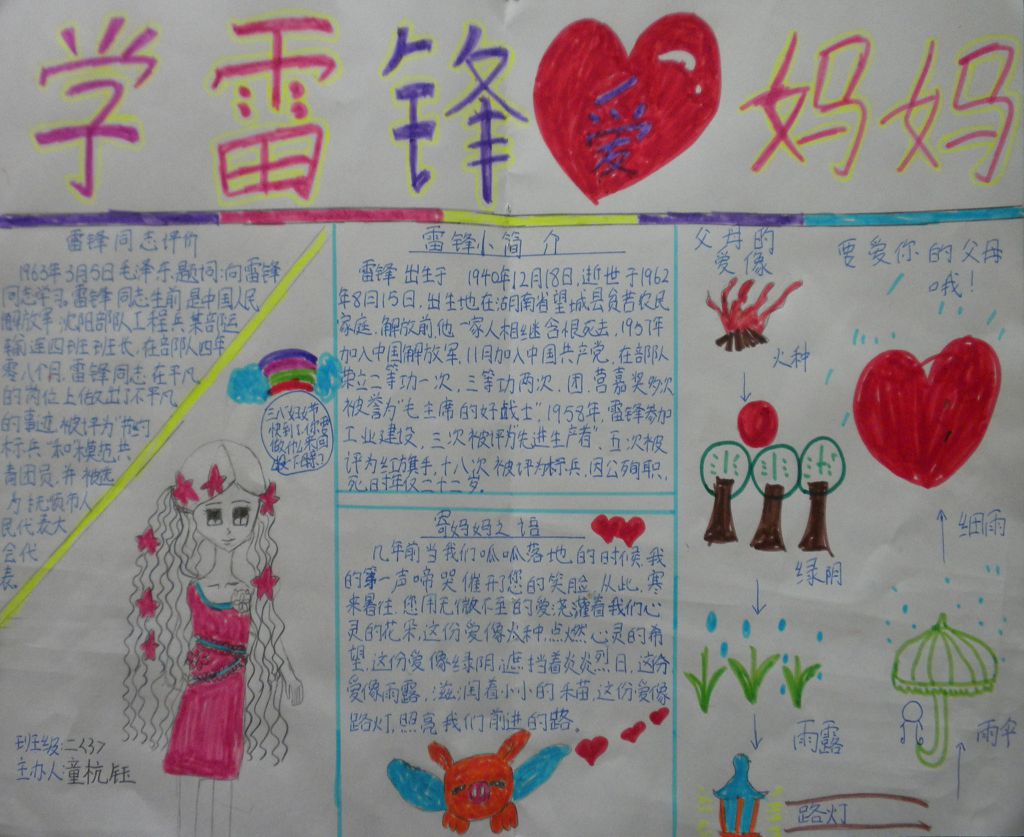 学雷锋爱妈妈
雷锋同志评价
1963年3月5日毛泽东题词:向雷锋
同志学习。雷锋同志生前是中国人民
解放军沈阳部队工程兵某部运
输连四班班长,在部队四年
零八个月,雷锋同志在平凡
的岗位上做出了不平凡
的事迹,被评为"节约
标兵"和"模范共
青团员,并被选
为抚顺市人
民代表大
会代
表
三八妇女节
快到了,你要
班级:二<3>
主办人:童杭钰
雷锋小简介
雷锋出生于1940年12月18日,逝世于1962
年8月15日,出生地在湖南省望城县贫苦农民
家庭,解放前他一家人相继含恨死去,1957年
加入中国解放军,11月加入中国共产党,在部队
荣立二等功一次,三等功两次,团、营嘉奖多次
被誉为"毛主席的好战士",1958年,雷锋参加
工业建设,三次被评为"先进生产者",五次被
评为红旗手,十八次被评为标兵,因公殉职,
死时年仅二十二岁。
寄妈妈之语
几年前当我们呱呱落地的时候,我
的第一声啼哭催开了您的笑脸,从此,寒
来暑往,您用无微不至的爱浇灌着我们心
灵的花朵,这份爱像火种点燃心灵的希
望,这份爱像绿阴,遮挡着炎炎烈日,这份
爱像雨露,滋润着小小的禾苗,这份爱像
路灯,照亮我们前进的路。
父母的
爱像
要爱你的父母
哦!
火种
绿阴
细雨
雨露
雨伞
路灯